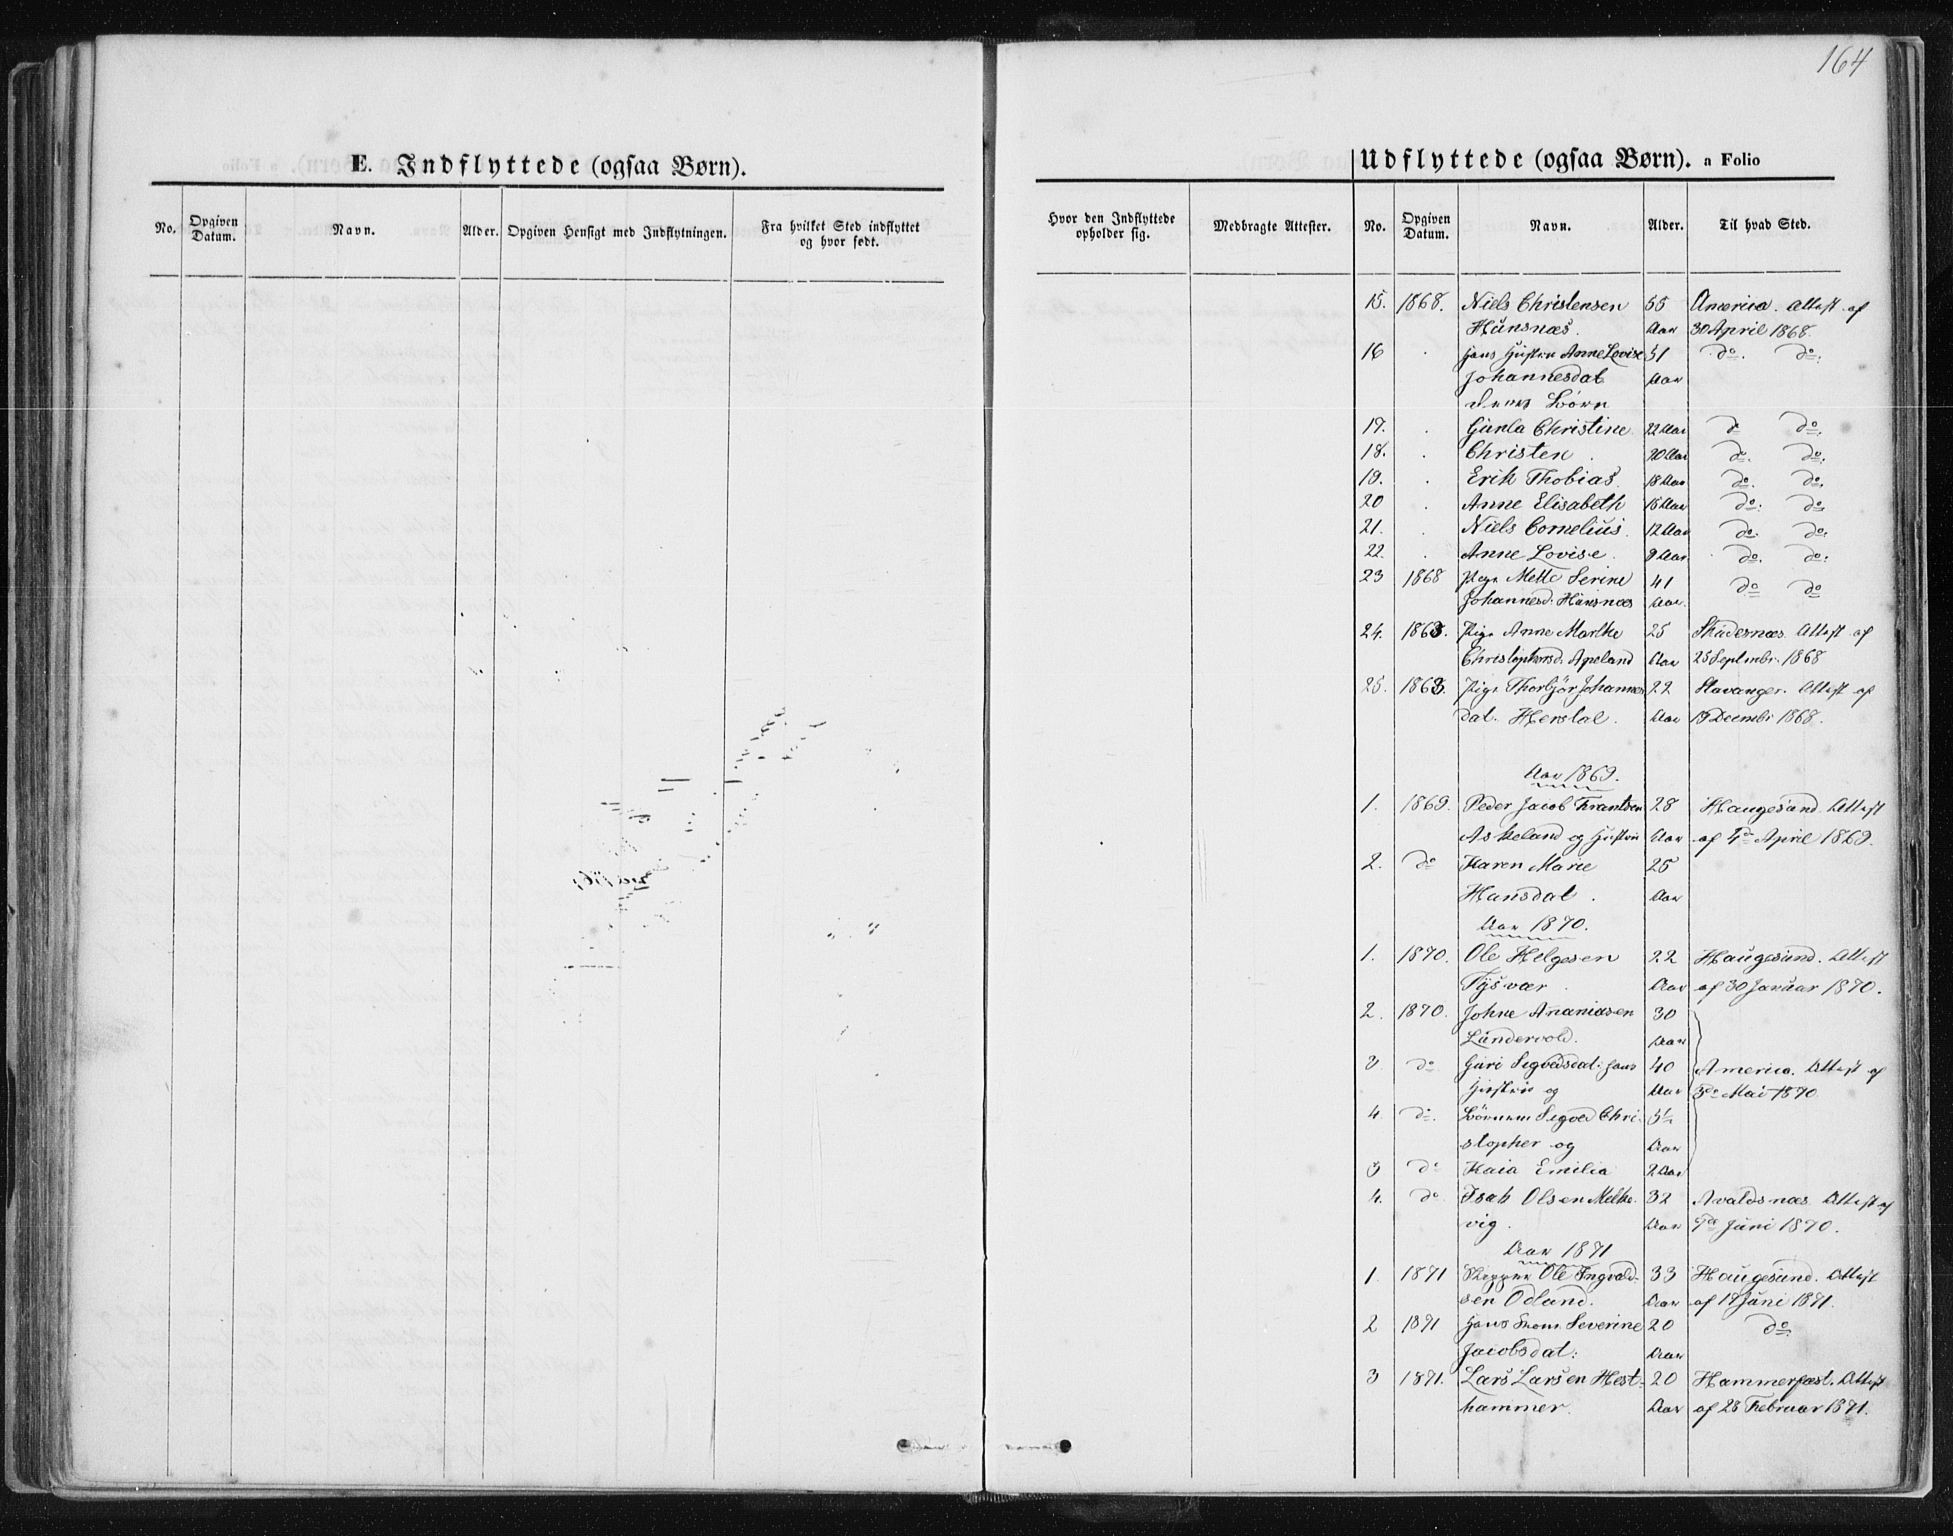 164
E. Indflyttede (ogsaa Børn).
No. Opgiven Datum. Navn. Alder. Opgiven Hensigt med Indflytningen. Fra hvilket Sted indflyttet og hvor født.
Udflyttede (ogsaa Børn). a Folio
Hvor den Indflyttede opholder sig. Medbragte Attester. No. Opgiven Datum. Navn. Alder. Til hvad Sted.
15. 1868. Niels Christensen 55 America. Attest af
Hünsnæs. Aar 30 April 1868
16 . Hans Hustru Anne Lovise 51 do. do.
Johannesdat Aar
Børn
17. . Gunla Christine 22 Aar do do.
18. . Christen . 20 Aar do. do.
19. . Erik Thobias. 18 Aar do. do.
20 . Anne Elisabeth 15 Aar do. do
21. . Niels Cornelius. 12 Aar do. do.
22. . Anne Lovise. 9 Aar do. do.
23 1868 Pige Mette Serine 41 do do
Johannesd. Hünsnæs Aar.
24. 1868. Pige Anne Marthe 25 Skudesnæs. Attest af
Christophersd. Apeland Aar 25 Septembr. 1868
25. 1868. Pige Thorbjør Johannes 22 Stavanger. Attest af
dat. Herstal. Aar 19 Decembr 1868.
Aar 1869.
1. 1869. Peder Jacob Frantsen 28 Haugesund. Attest
Askeland og Hustru Aar af 4de April 1869.
2. do Karen Marie 25
Hansdat . Aar
Aar 1870.
1. 1870. Ole Helgesen 22 Haugesund. Attest
Tysvær . Aar af 30 Januar 1870.
2. 1870. Johne Ananiasen 30
Landervold. Aar
3 do Guri Segvedsdat: hans 40 America. Attest af
Hustru og Aar 3de Mai 1870.
4. do. Børnene Segved Chri-
stopher og Aar
5 do Kaia Emilia 2 Aar
4. do Isak Olsen Melke- 32 Avaldsnæs. Attest af
vig. Aar Juni 1870.
Aar 1871
1. 1871 Skipper Ole Ingvald- 33 Haugesund. Attest
sen Odland. Aar af 17 Juni 1871.
2 1871 Hans Kone Severine 20 do
Jacobsdat: Aar
3 1871. Lars Larsen Hest- 20 Hammerfest. Attest
hammer. Aar af 28 Februar 1871.